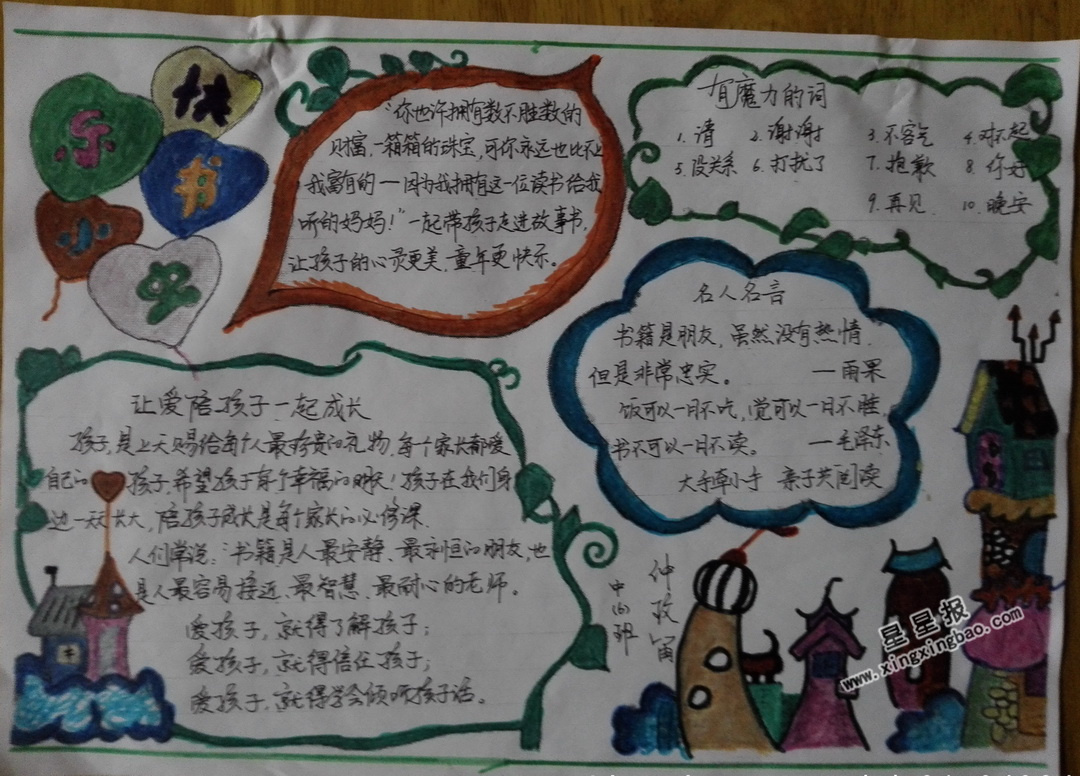 快
乐
书
小
虫
"你也许拥有数不胜数的
财富,一箱箱的珠宝,可你永远也比不上
我富有的——因为我拥有这一位读书给我
听的妈妈!"一起带孩子走进故事书,
让孩子的心灵更美,童年更快乐。
有魔力的词
1、请 2、谢谢 3、不客气 4、对不起
5、没关系 6、打扰了 7、抱歉 8、你好
9、再见 10、晚安
名人名言
书籍是朋友,虽然没有热情,
但是非常忠实。 —雨果
饭可以一日不吃,觉可以一日不睡,
书不可以一日不读。 —毛泽东
大手牵小手 亲子共阅读
让爱陪孩子一起成长
孩子,是上天赐给每个人最珍贵的礼物,每个家长都爱
自己的孩子,希望孩子有个幸福的明天!孩子在我们身
边一天天长大,陪孩子成长是每个家长的必修课.
人们常说:"书籍是人最安静、最永恒的朋友,也
是人最容易接近、最智慧、最耐心的老师。
爱孩子,就得了解孩子;
爱孩子,就得信任孩子;
爱孩子,就得学会倾听孩子话。
中四班
仲政
星星报
www.xingxingbao.com